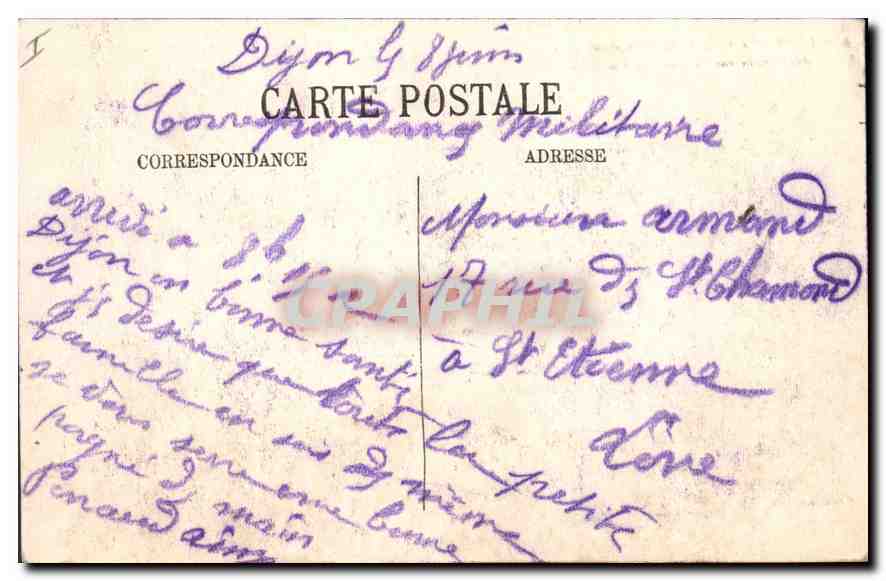 I
Dijon le 8 juin
CARTE POSTALE
Correspondance militaire
CORRESPONDANCE
ADRESSE
arrivé a 8h 1/2
Dijon en bonne santé
et je desire que toute la petite
famille en sois de même
je vous serre une bonne
poigné de main
Penaud
Monsieur armand
17 rue de St. Chamond
à St Etienne
Loire
CPAPHIL